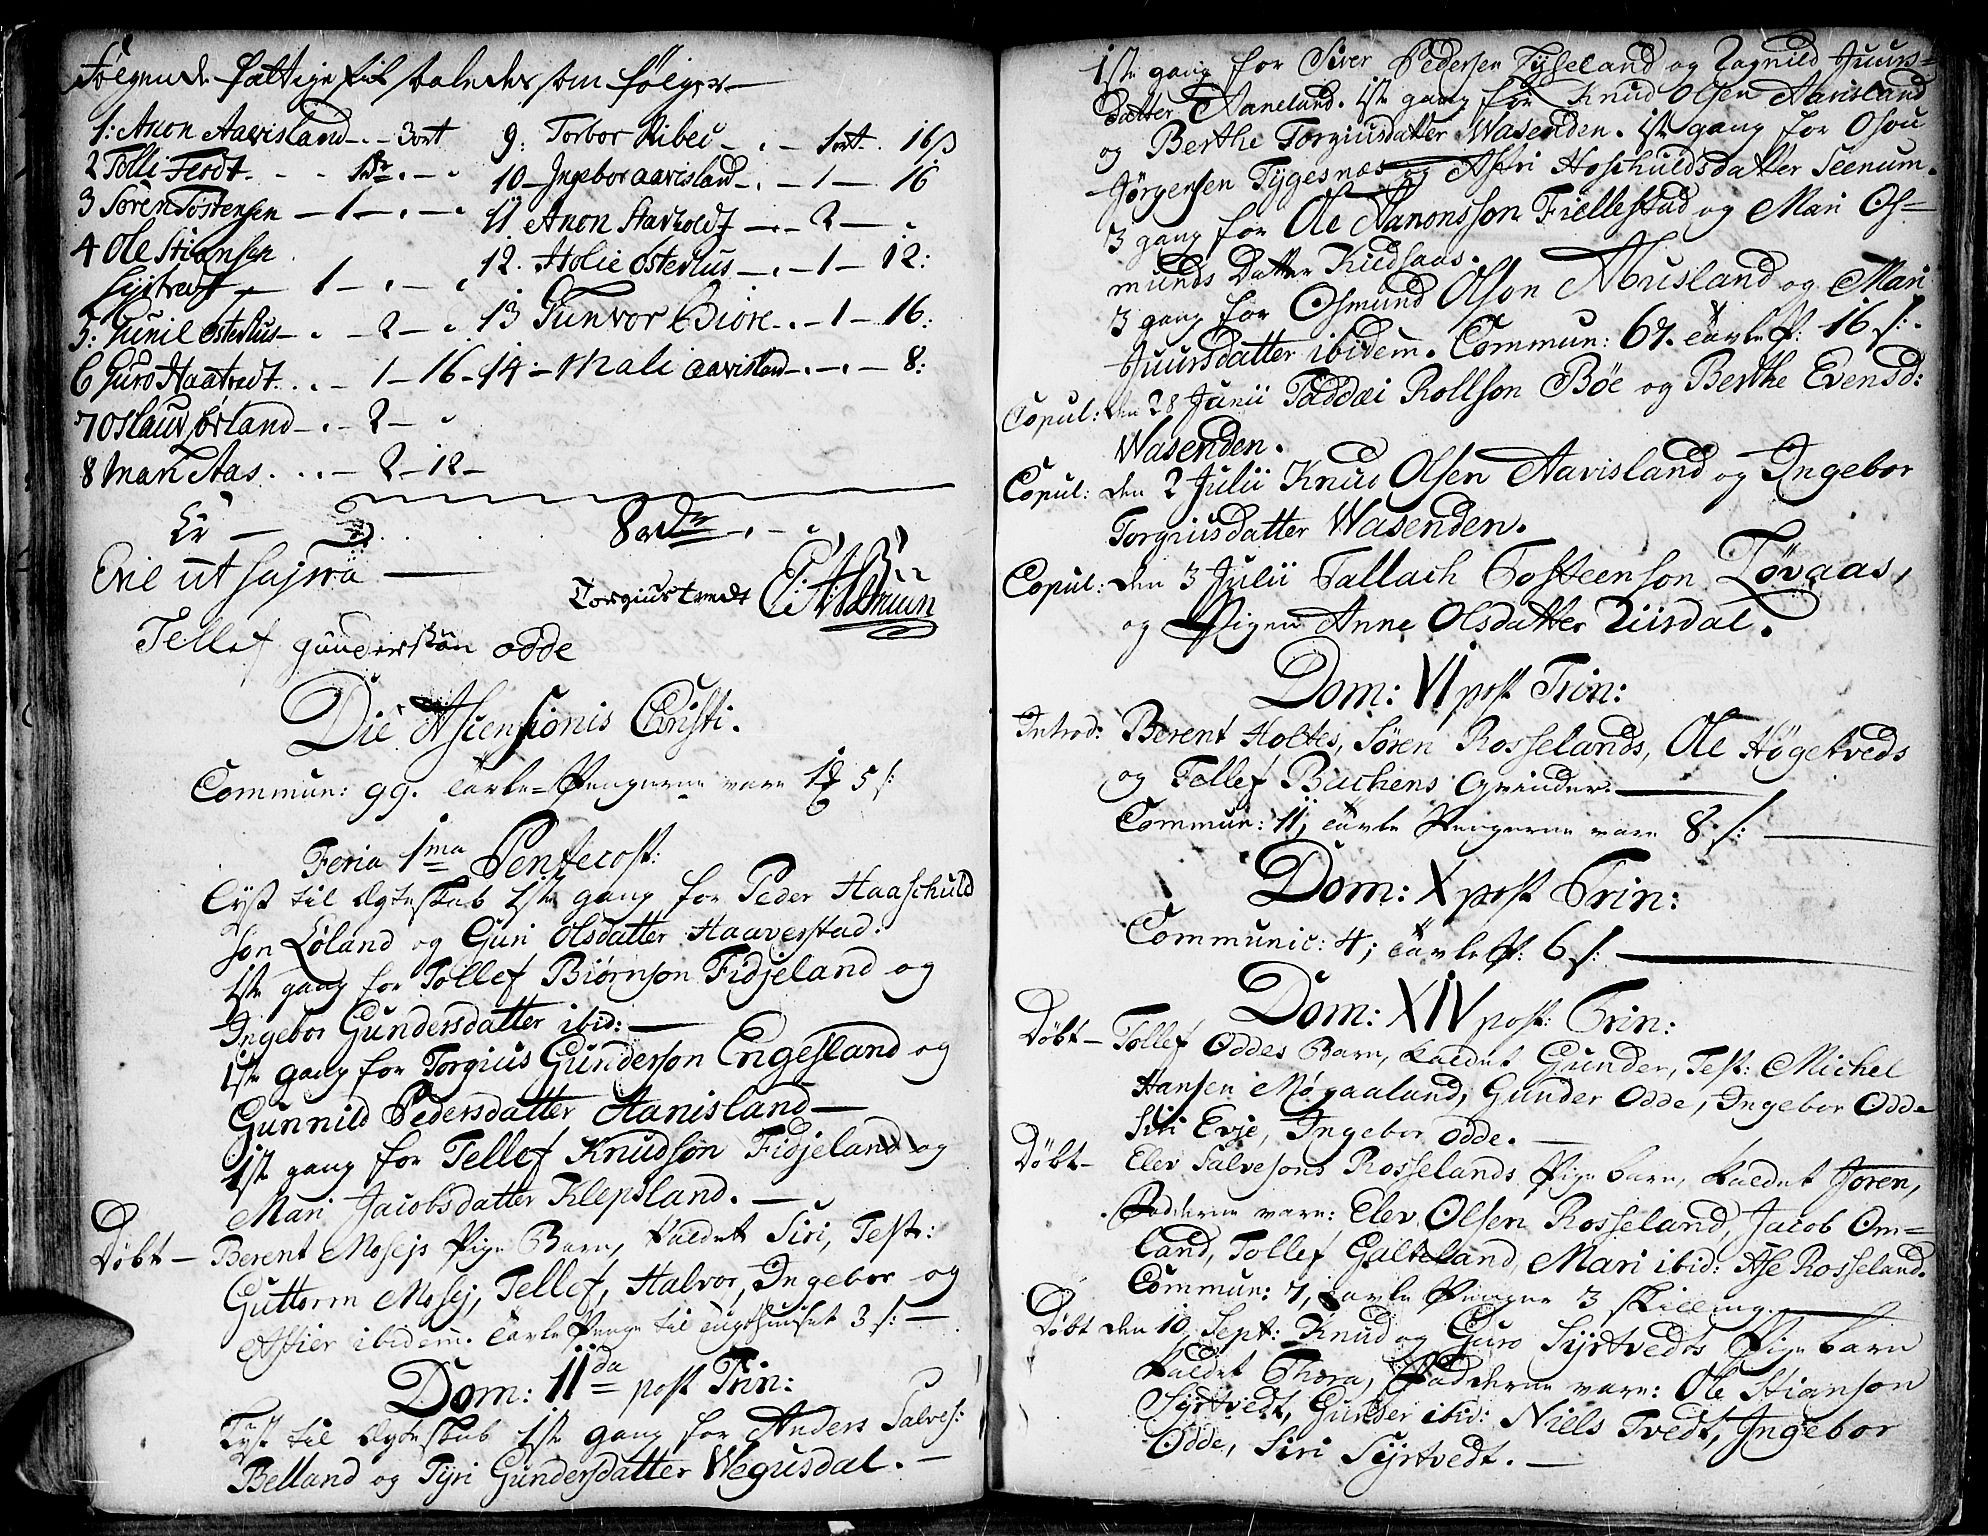 Følgende fattige fik saaledes som følger
1: Anon Aavisland - . - 3 ort
2 Tolle Ferdt . - . 1 Dr . - .
3 Søren Tostensen - 1 - . - .
4 Ole Stiansen
Syrtvedt - 1 - . - .
5: Gunil Osterhus - . - 2 - .
6 Guro Haatvedt . . - 1 - 16 -
7 Oslauv Sørland - . - 2 - .
8 Mari Aas . . . - 2 - 12 -
9: Torbor Ribeu - . - 1 ort . 16 β
10 - Ingebor Aavisland - . - 1 - 16
11 Anon Stavholdt - . - 2 - .
12. Holie Osterhus - . - 1 - 12:
13 Gunvor Biore - . - 1 - 16:
14 - Mali Aavisland - . - . - 8:
Er - 8 Dr - . - .
Evie ut supra
Torgius tvedt
Tellef gunderssøn odde
Die Ascensionis Christi.
Commun: 99. Tavle-Pengerne vare 1 5 s:
Feria 1ma Pentecost:
Lyst til Ægteskab 1ste gang for Peder Haaschuld
son Løland og Guri Olsdatter Haaverstad.
1ste gang for Tollef Biørnson Fidjeland og
Ingebor Gundersdatter ibid: -
1ste gang for Torgius Gunderson Engesland og
Gunnild Pedersdatter Aanisland -
1st gang for Tellef Knudson Fidjeland og
Mari Jacobsdatter Klepsland. -
Døbt - Berent Mosejs Pige Barn, kaldet Siri, Test:
Guttorm Mosej, Tellef, Halvor, Ingebor og
Astier ibidem. Tavle Penge til Tugthuuset 3 s: -
Dom: IIda post Trin:
Lyst til Ægteskab 1ste gang for Anders Salves:
Belland og Tyri Gundersdatter Wegusdal. -
1ste gang for Siver Pedersen Tyseland og Ragnild Juurs=
datter Aaneland. 1ste gang for Knud Olsen Aavisland
og Berthe Torgiusdatter Wasenden. 1ste gang for Osou
Jørgensen Tygesnæs og Astri Hoschuldsdatter Seenum.
3 gang for Ole Aanonsson Fiellestad og Mari Os=
munds Datter Kiedsaas.
3 gang for Osmund Olson Abusland og Mari
Juursdatter ibidem. Commun: 67. Tavle P: 16 s:
Copul: den 28 Junii Taddæi Rollson Bøe og Berthe Evensd:
Wasenden.
Copul: den 2 Julii Knud Olsen Aavisland og Ingebor
Torgiusdatter Wasenden.
Copul: den 3 Julii Tallach Tosteenson Løvaas,
og Pigen Anne Olsdatter Riisdal.
Dom: VI post Trin:
Introd: Berent Holtes, Søren Rosselands, Ole Høgetveds
og Tollef Bachens Qvinder.
Commun: 11, Tavle Pengerne vare 8 s: -
Dom: X post Trin:
Communic: 4; Tavle P: 6 s: -
Dom: XIV post: Trin:
Døbt - Tollef Oddes Barn, kaldet Gunder, Test: Michel
Hansen Møgaaland, Gunder Odde, Ingebor Odde
Siri Evje, Ingebor Odde. -
Døbt - Elev Salvesons Rosselands Pige barn, kaldet Joren,
Fadderne vare: Elev Olsen Rosseland, Jacob Om=
land, Tollef Galteland, Mari ibid: Ase Rosseland.
Commun: 7, Tavle Penger 3 skilling.
Døbt den 10 Sept: Knud og Guro Syrtvedts Pige barn
kaldet Thora, Fadderne vare: Ole Stianson
Syrtvedt, Gunder ibid: Niels Tvedt, Ingebor
Odde, Siri Syrtvedt. -